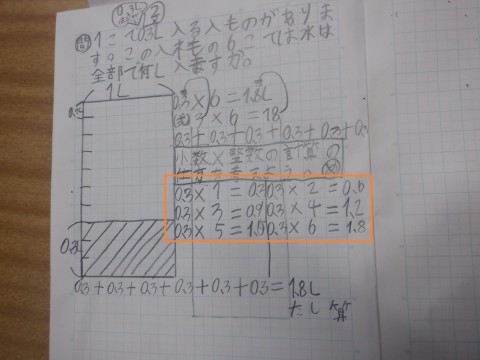 0.3L
問 1こで0.3L入る入ものがありま
す。この入れもの6こでは水は
全部で何L入ますか。
1L
0.3 × 6 = 1.8L
3 × 6 = 18
0.3+0.3+0.3+0.3+0.3+0.3
小数×整数の計算の
0.3 × 1 = 0.3 0.3 × 2 = 0.6
0.3 × 3 = 0.9 0.3 × 4 = 1.2
0.3 × 5 = 1.5 0.3 × 6 = 1.8
0.3
0.3+0.3+0.3+0.3+0.3+0.3=1.8L
たし算